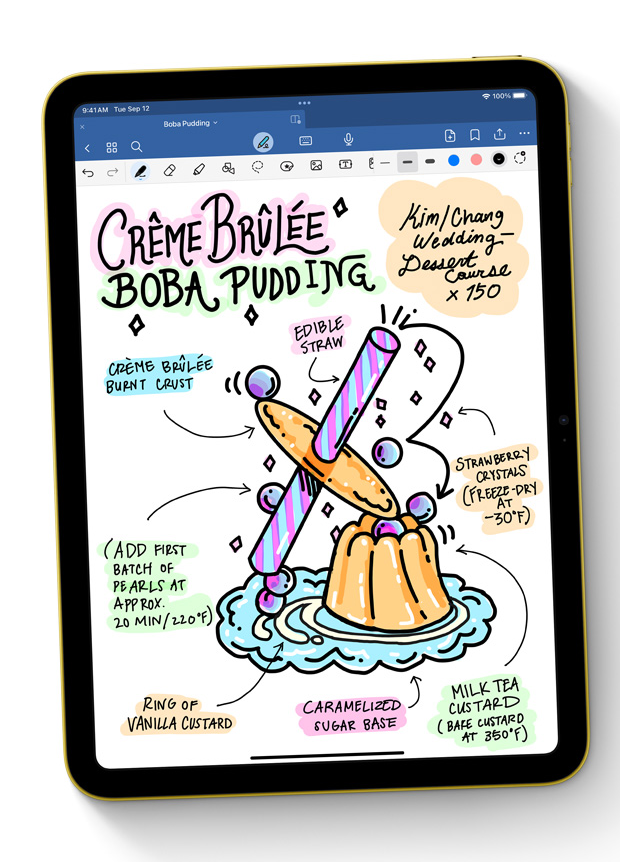 9:41AM Tue Sep 12
100%
Boba Pudding
CRÊME BRÛLÉE
BOBA PUDDING
Kim/Chang
Wedding—
Dessert
Course
x 150
EDIBLE
STRAW
CRÈME BRÛLÉE
BURNT CRUST
STRAWBERRY
CRYSTALS
(FREEZE-DRY
AT
-30°F)
(ADD FIRST
BATCH OF
PEARLS AT
APPROX.
20 MIN/220°F)
RING OF
VANILLA CUSTARD
CARAMELIZED
SUGAR BASE
MILK TEA
CUSTARD
(BAKE CUSTARD
AT 350°F)